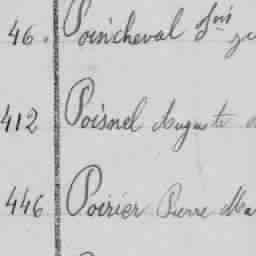 46. Poincheval fois
412 Poisnel Auguste
446 Poirier Pierre Ma